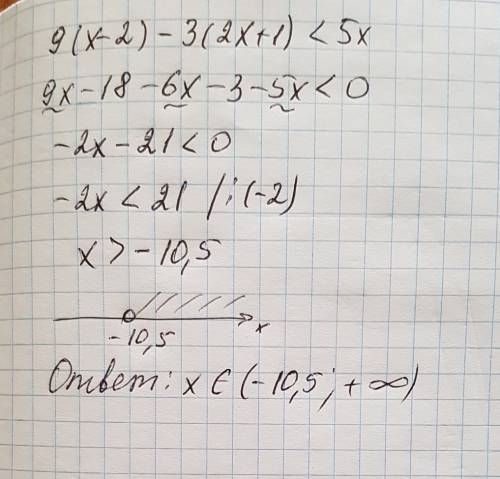 9(x-2)-3(2x+1)<5x
9x-18-6x-3-5x<0
-2x-21<0
-2x<21 /:(-2)
x>-10,5
-10,5 x
Ответ: x∈(-10,5;+∞)